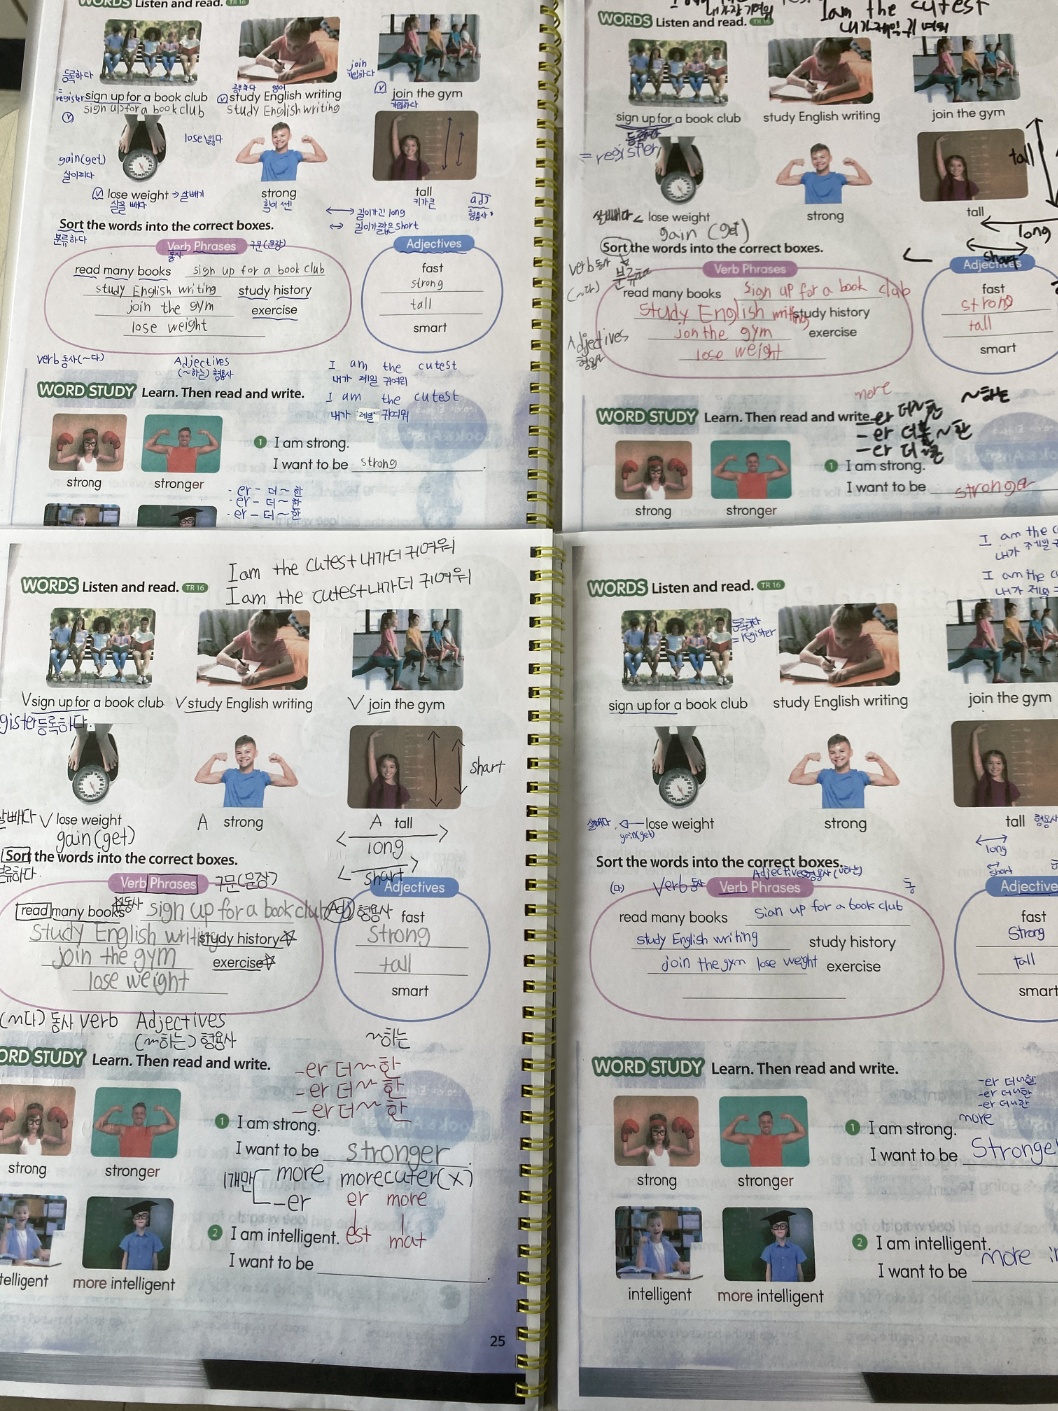 WORDS Listen and read. TR 16
등록하다
register sign up for a book club
sign up for a book club
공부하다 영어
study English writing
study English writing
join
가입하다
join the gym
가입하다
gain(get)
살이찌다
lose 잃다
lose weight → 살빼다
살을 빼다
strong
힘이 쎈
tall
키가 큰
adj
형용사
길이가 긴 long
길이가 짧은 short
Sort the words into the correct boxes.
분류하다
Verb Phrases 구문(문장)
동사
read many books sign up for a book club
study English writing study history
join the gym exercise
lose weight
Adjectives
fast
strong
tall
smart
verb 동사(~다)
Adjectives
(~하는) 형용사
I am the cutest
내가 제일 귀여워
I am the cutest
내가 제일 귀여워
WORD STUDY Learn. Then read and write.
strong
stronger
1 I am strong.
I want to be strong.
-er - 더 ~ 한
-er - 더 ~ 한
-er - 더 ~ 한
I am the cutest
내가 제일 귀여워
WORDS Listen and read. TR 16
sign up for a book club
등록하다
= register
study English writing
join the gym
살빼다 lose weight
gain (get)
strong
tall
tall
long
short
Sort the words into the correct boxes.
verb 동사
(~다)
분류하다
Adjectives
형용사
Verb Phrases
read many books sign up for a book club
study English writing study history
jon the gym exercise
lose weight
Adjectives
fast
strong
tall
smart
WORD STUDY Learn. Then read and write.
more
~하는
-er 더 ~한
-er 더 ~한
-er 더 ~한
strong
stronger
1 I am strong.
I want to be stronger
I am the cutest 내가 더 귀여워
I am the cutest 내가 더 귀여워
WORDS Listen and read. TR 16
V sign up for a book club
gister 등록하다.
V study English writing
V join the gym
살빼다 V lose weight
gain(get)
A strong
A tall
shart
long
short
Sort the words into the correct boxes.
분류하다.
Verb Phrases 구문(문장)
동사
read many books sign up for a book club
study English writing study history
join the gym exercise
lose weight
Adjectives
Adj 형용사
fast
strong
tall
smart
(~다) 동사 verb Adjectives
(~하는) 형용사
~하는
ORD STUDY Learn. Then read and write.
-er 더 ~ 한
-er 더 ~ 한
-er 더 ~ 한
strong
stronger
1 I am strong.
I want to be stronger
1개만 more morecuter(x)
-er er more
2 I am intelligent. est
I want to be
telligent
more intelligent
25
WORDS Listen and read. TR 16
I am the c
내가 제일 귀
I am the cu
내가 제일 귀
sign up for a book club
등록하다
= register
study English writing
join the gym
lose weight
gain(get)
strong
tall 형용사
long
short
Sort the words into the correct boxes.
(a) Verb 동사 Verb Phrases
Adjectives 형용사(~하는)
read many books sian up for a book club
study English writing study history
join the gym lose weight exercise
Adjective
fast
Strong
tall
smart
WORD STUDY Learn. Then read and write.
-er 더 ~한
-er 더 ~한
-er 더 ~한
more
strong
stronger
1 I am strong.
I want to be Stronge
2 I am intelligent.
I want to be more in
intelligent
more intelligent